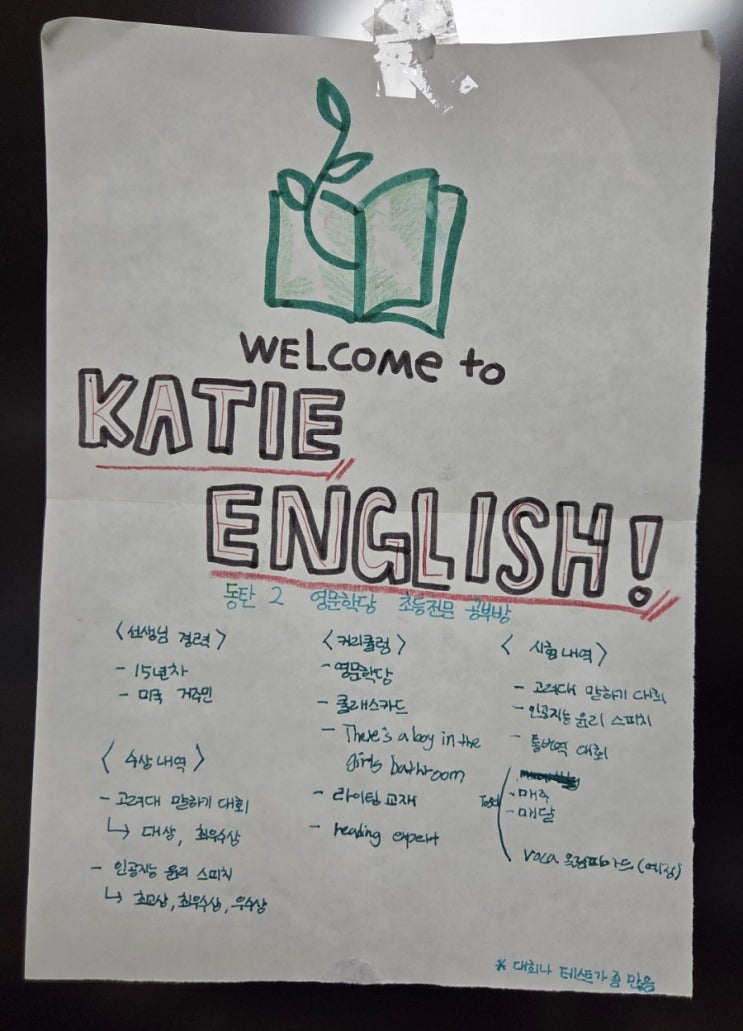 WELCOME to
KATIE
ENGLISH!
동탄 2 영문학당 초등전문 공부방
<선생님 경력>
- 15년차
- 미국 거주민
<수상내역>
- 고려대 말하기 대회
↳ 대상, 최우수상
- 인공지능 윤리 스피치
↳ 최고상, 최우수상, 우수상
<커리큘럼>
- 영문학당
- 클래스카드
- There's a boy in the
girls bathroom
- 라이팅 교재
- reading expert
<시험내역>
- 고려대 말하기 대회
- 인공지능 윤리 스피치
- 통번역 대회
Test
- 매주
- 매달
VOCA 올림피아드 (예정)
* 대회나 테스트가 좀 많음